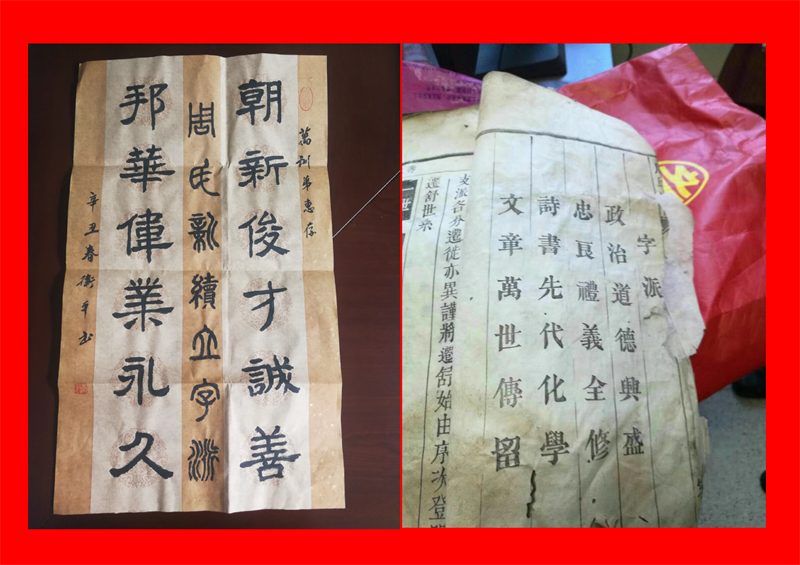 萬訓弟惠存
朝新俊才誠善
周氏新續立字派
邦華偉業永久
辛丑春衛平书
字派
政治道德興盛
忠良禮義全修
詩書先代化學
文章萬世傳留
支派各分遷徙亦異謹將遷舒始由序次登
遷舒世系